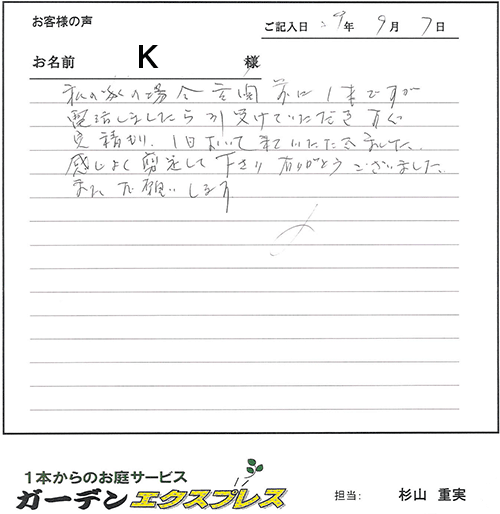 お客様の声
ご記入日 29年 9月 7日
お名前 K 様
私の家の場合 玄関 前に 1本ですが
電話しましたら 引受けていただき すぐ
見積り、1日おいて 来ていただきました。
感じよく 剪定して 下さり ありがとう ございました。
また お願い します
1本からのお庭サービス
ガーデンエクスプレス
担当: 杉山 重実